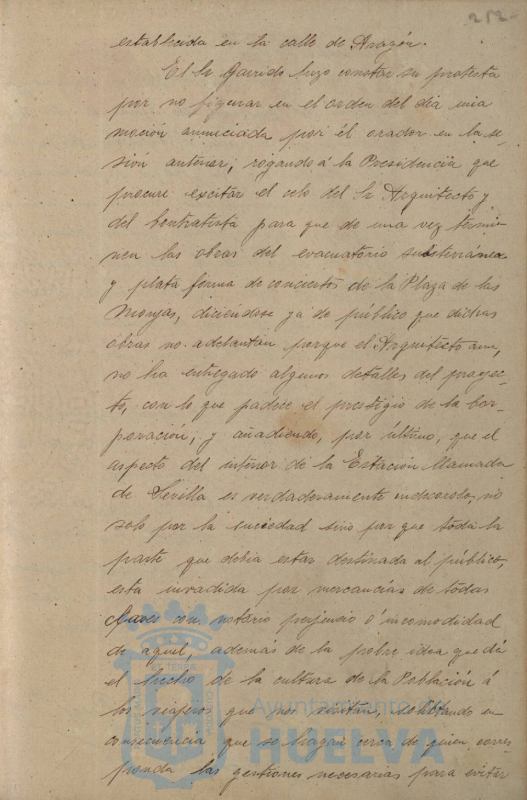 252
establecida en la calle de Aragón.
El Sr Garrido hizo constar su protesta
por no figurar en el orden del dia una
moción anunciada por él orador en la se-
sión anterior; rogando á la Presidencia que
procure excitar el celo del Sr Arquitecto y
del Contratista para que de una vez termi-
nen las obras del evacuatorio subterráneo
y plata forma de conciertos de la Plaza de las
Monjas, diciéndose ya de público que dichas
obras no adelantan porque el Arquitecto aun
no ha entregado algunos detalles del proyec-
to, con lo que padece el prestigio de la Cor-
poración; y añadiendo, por último, que el
aspecto del interior de la Estación llamada
de Sevilla es verdaderamente indecoroso, no
solo por la suciedad sino por que toda la
parte que debia estar destinada al público,
esta invadida por mercancías de todas
clases con notorio perjuicio é incomodidad
de aquel, ademas de la pobre idea que dá
el hecho de la cultura de la Población á
los viajeros que nos visitan, solicitando en
consecuencia que se hagan cerca de quien corres-
ponda las gestiones necesarias para evitar
Ayuntamiento de
HUELVA